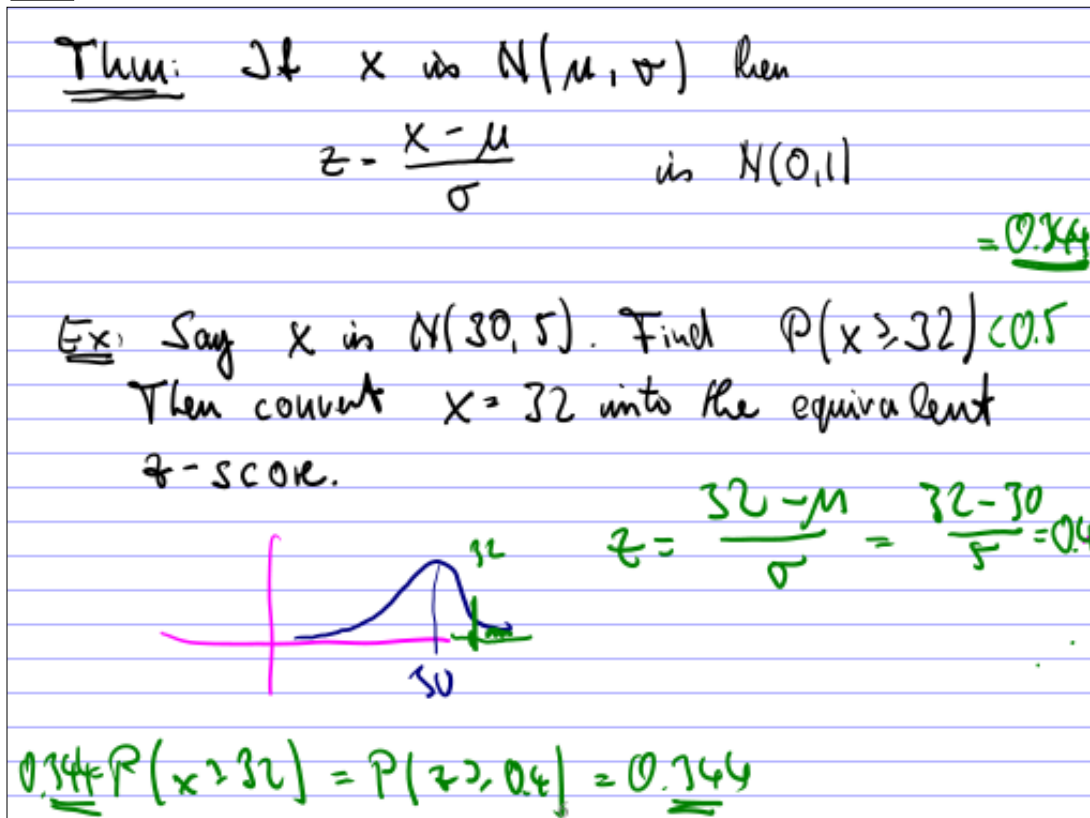 Thm: If x is N(μ, σ) then
z = (x - μ)/σ is N(0,1)
= 0.344
Ex: Say x is N(30,5). Find P(x ≥ 32) < 0.5
Then convert x = 32 into the equivalent
z-score.
z = (32 - μ)/σ = (32 - 30)/5 = 0.4
32
30
0.344 = P(x ≥ 32) = P(z ≥ 0.4) = 0.344